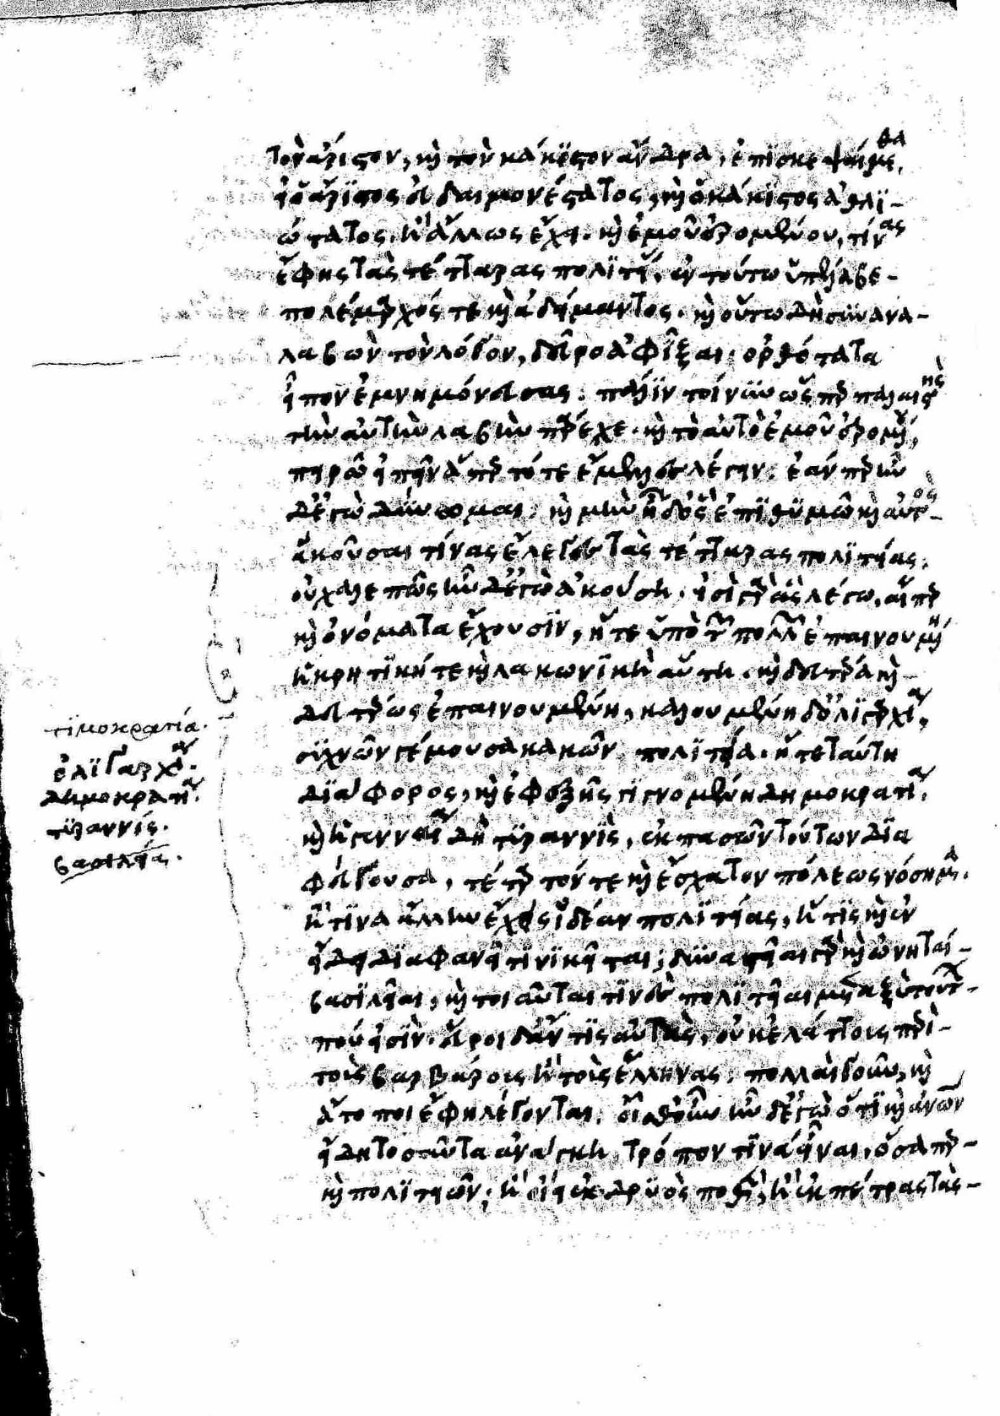 τὸν ἄριστον, καὶ τὸν κάκιστον ἄνδρα, ἐπισκεψαίμεθα
εἰ ὁ ἄριστος εὐδαιμονέστατος, καὶ ὁ κάκιστος ἀθλι-
ώτατος, ἢ ἄλλως ἔχει. καὶ ἐμοῦ ἐρομένου, τίνας
ἔφης τὰς τέτταρας πολιτεί, ἐν τούτω ὑπέλαβε
πολέμαρχός τε καὶ ἀδήμαντος. καὶ οὕτω δὴ σὺ ἀνα-
λαβὼν τὸν λόγον, δεῦρο ἀφῖξαι. ὀρθότατα
εἶπον ἐμνημόνευσας. πάλιν τοίνυν ὥσπερ παλαιστὴς
τὴν αὐτὴν λαβὴν πάρεχε. καὶ τὸ αὐτὸ ἐμοῦ ἐρομέ,
πειρῶ εἰπεῖν ἅπερ τότε ἔμελλες λέγειν. ἐάνπερ ἦν
δ' ἐγὼ δύνωμαι. καὶ μὴν ἦ δ' ὃς ἐπιθυμῶ καὶ αὐτὸς
ἀκοῦσαι τίνας ἔλεγες τὰς τέτταρας πολιτείας.
οὐ χαλεπῶς ἦν δ' ἐγὼ ἀκούση. εἰσὶ γὰρ ἃς λέγω, αἵπερ
καὶ ὀνόματα ἔχουσιν, ἥ τε ὑπὸ τῶν πολλῶν ἐπαινουμένη
ἡ κρητική τε καὶ λακωνικὴ αὕτη. καὶ δευτέρα καὶ
δευτέρως ἐπαινουμένη, καλουμένη δ' ὀλιγαρχία,
συχνῶν γέμουσα κακῶν πολιτεία. ἥ τε ταύτη
διάφορος, καὶ ἐφεξῆς γιγνομένη δημοκρατία.
καὶ ἡ γενναία δὴ τυραννὶς, ἐκ πασῶν τούτων δια
φεύγουσα, τέταρτόν τε καὶ ἔσχατον πόλεως νόσημα.
ἤ τινα ἄλλην ἔχεις ἰδέαν πολιτείας, ἥτις καὶ ἐν
εἴδει διαφανεῖ τινὶ κεῖται; δυναστεῖαι γὰρ καὶ ὠνηταὶ
βασιλεῖαι, καὶ τοιαῦταί τινες πολιτεῖαι μεταξύ τι τούτων
πού εἰσιν. εὕροι δ' ἄν τις αὐτὰς, οὐκ ἐλάττους περὶ
τοὺς βαρβάρους ἢ τοὺς ἕλληνας. πολλαὶ γοῦν, καὶ
ἄτοποι ἔφη λέγονται. οἶσθ' οὖν ἦν δ' ἐγὼ ὅτι καὶ ἀνθρώπων
εἴδη τοσαῦτα ἀνάγκη τρόπων τινὰ εἶναι, ὅσα περ
καὶ πολιτειῶν; ἢ οἴει ἐκ δρυὸς ποθὲν, ἢ ἐκ πέτρας τὰς
τιμοκρατία.
ὀλιγαρχία.
δημοκρατία.
τυραννίς.
βασιλεία.